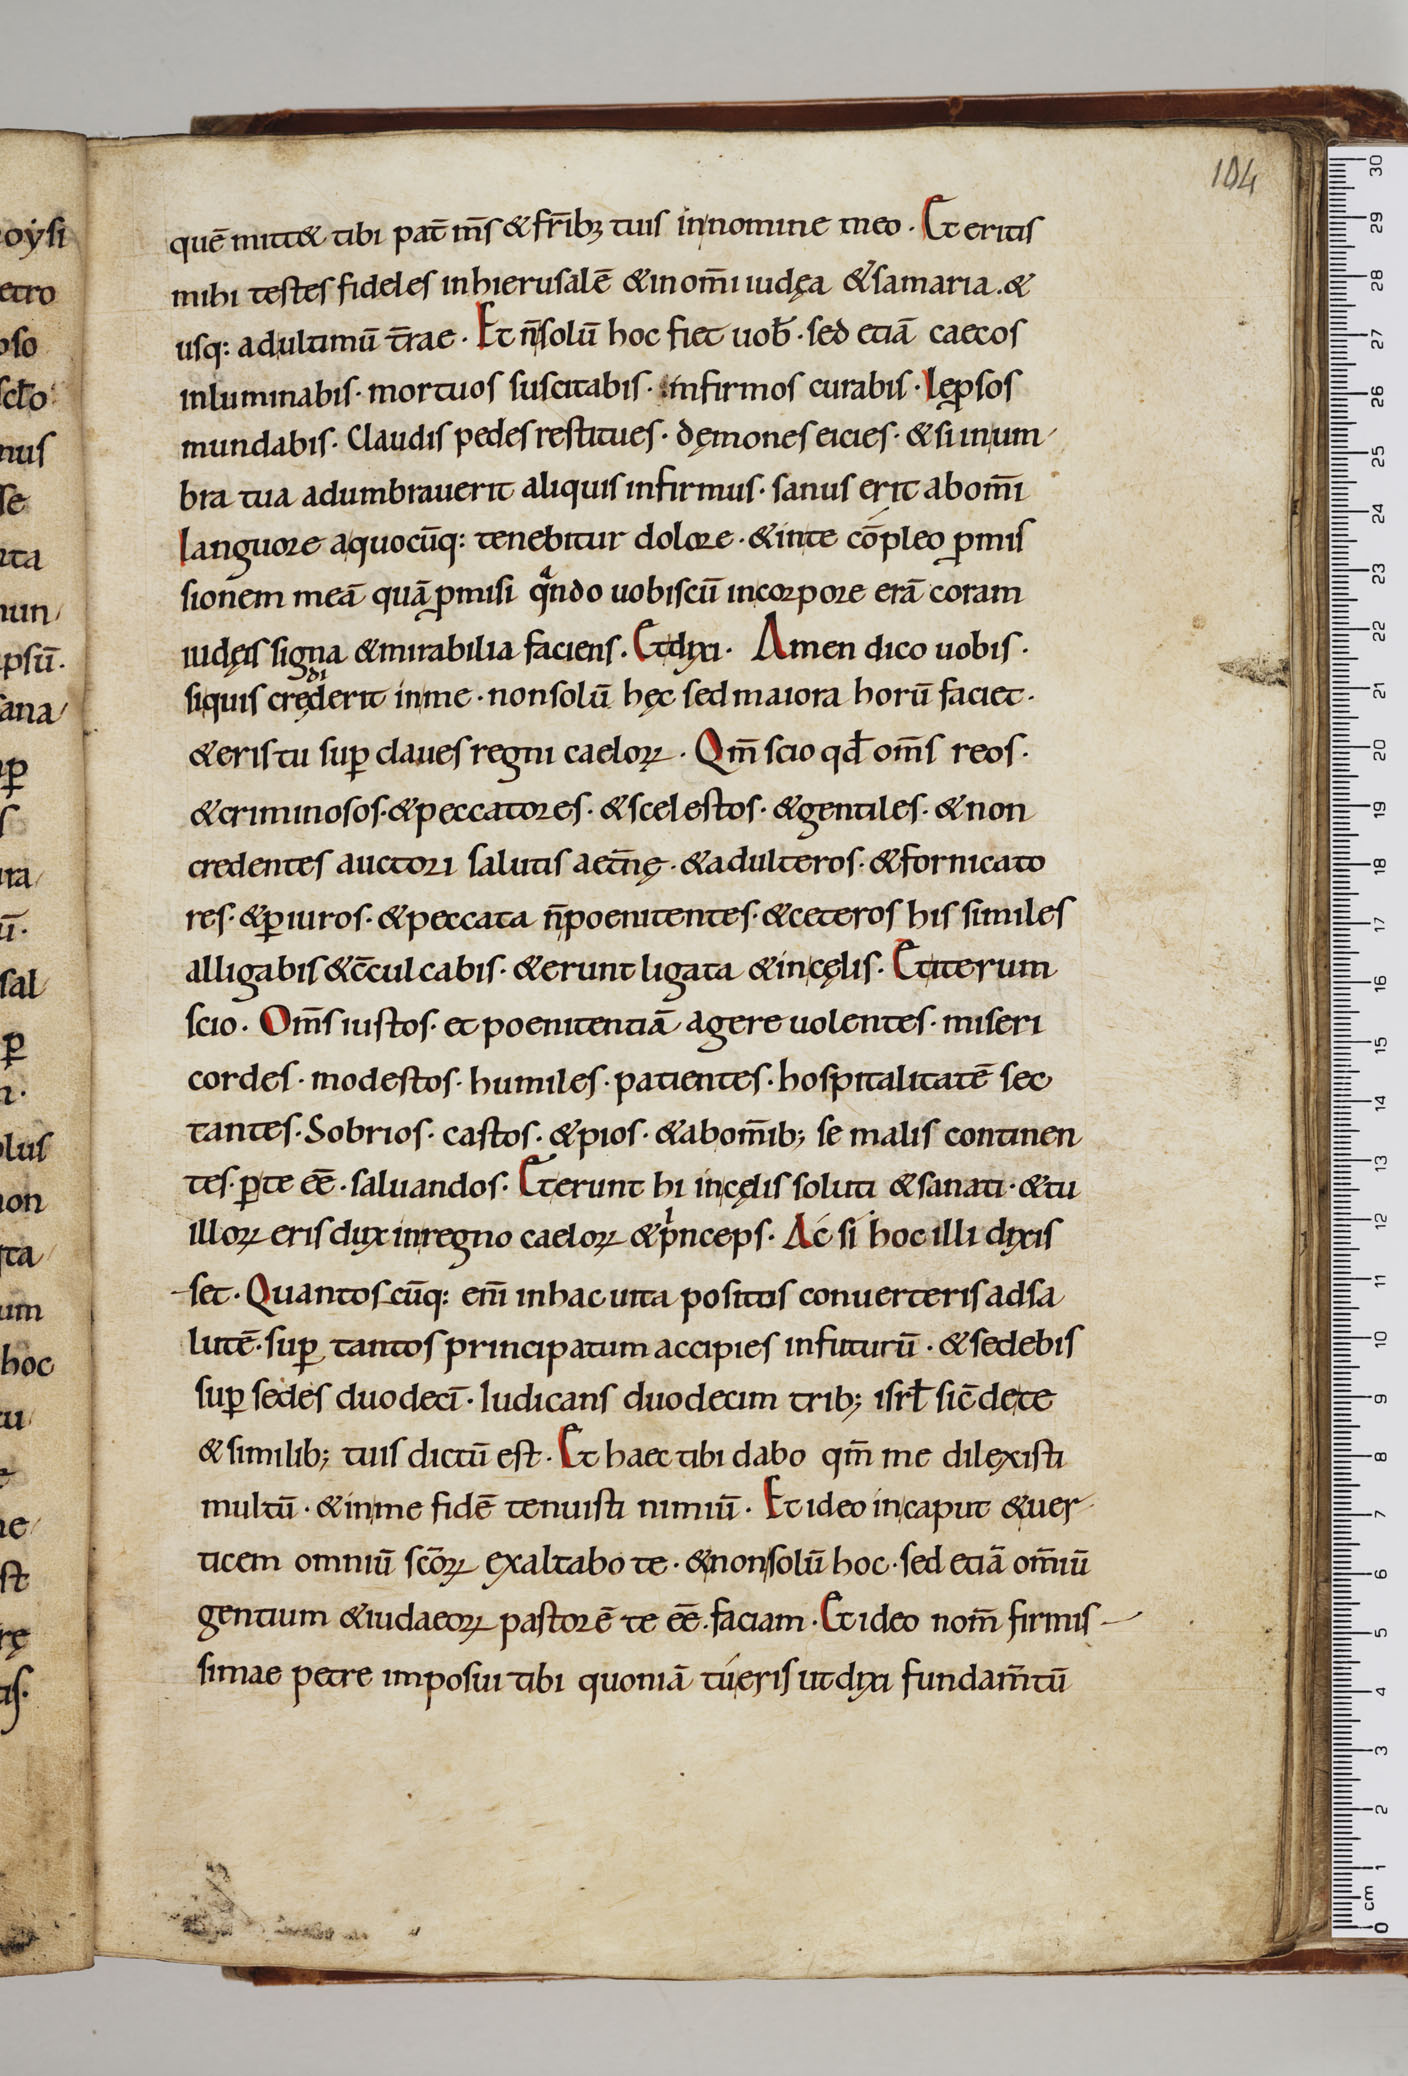 104
quē mitt& tibi pat̄ m̄s & fr̄ibꝫ tuis in nomine meo. Et eritis
mihi testes fideles in hierusalē & in om̄i iudęa & samaria. &
usq: ad ultimū t̄rae. Et n̄ solū hoc fiet uob̄. sed etiā caecos
inluminabis. mortuos suscitabis. infirmos curabis. Lęp̱sos
mundabis. Claudis pedes restitues. dęmones eicies. & si in um
bra tua adumbrauerit aliquis infirmus. sanus erit ab om̄i
languore a quocūq: tenebitur dolore. & in te cōpleo ꝓmis
sionem meā quā ꝓmisi qͣndo uobiscū in corpore erā coram
iudęis signa & mirabilia faciens. Et dixi. Amen dico uobis.
si quis credi derit in me. non solū hęc sed maiora horū faciet.
& eris tu suꝑ claues regni caeloꝝ. Qm̄ scio qđ om̄s reos.
& criminosos. & peccatores. & scelestos. & gentiles. & non
credentes auctori salutis aet̄nę. & adulteros. & fornicato
res. & ꝑiuros. & peccata n̄ poenitentes. & ceteros his similes
alligabis & c̄culcabis. & erunt ligata & in cęlis. Et iterum
scio. Om̄s iustos. et poenitentiā agere uolentes. miseri
cordes. modestos. humiles. patientes. hospitalitatē sec
tantes. Sobrios. castos. & pios. & ab om̄ib; se malis continen
tes. ꝑ te eē. saluandos. Et erunt hi in cęlis soluti & sanati. & tu
illoꝝ eris dux in regno caeloꝝ & pͥnceps. Ac si hoc illi dixis
set. Quantoscūq: eni̅ in hac uita positis conuerteris ad sa
lutē. suꝑ tantos principatum accipies in futurū. & sedebis
suꝑ sedes duodeci̅. Iudicans duodecim trib; isrł sic̄ de te
& similib; tuis dictū est. Et haec tibi dabo qm̄ me dilexisti
multū. & in me fidē tenuisti nimiū. Et ideo in caput & uer
ticem omniū sc̄oꝝ exaltabo te. & non solū hoc. sed etiā om̄iū
gentium & iudaeoꝝ pastorē te eē. faciam. Et ideo nom̄ firmis
simae petre imposui tibi quoniā tú eris ut dixi fundam̄tū